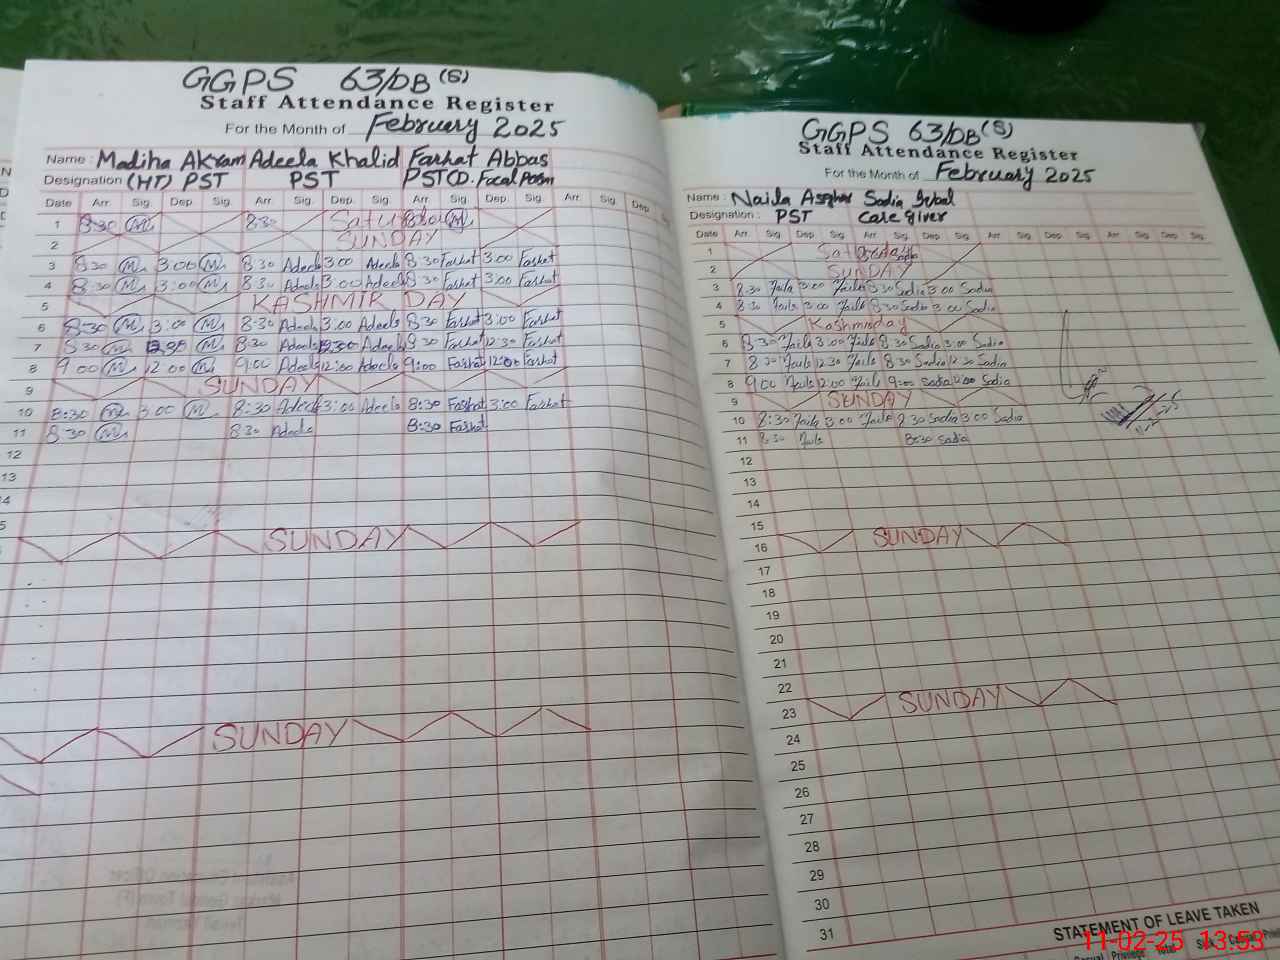 GGPS 63/DB (S)
Staff Attendance Register
For the Month of February 2025
Name : Madiha Akram Adeela Khalid Farhat Abbas
Designation (HT) PST PST PST(D. Focal
Date Arr Sig. Dep Sig. Arr Sig. Dep. Sig. Arr Sig. Dep. Sig. Arr Sig. Dep Sig.
1 8:30 M 8:30
2 SUNDAY
3 8:30 M 3:00 M 8:30 Adeela 3:00 Adeela 8:30 Farhat 3:00 Farhat
4 8:30 M 3:00 M 8:30 Adeela 3:00 Adeela 8:30 Farhat 3:00 Farhat
5 KASHMIR DAY
6 8:30 M 3:00 M 8:30 Adeela 3:00 Adeela 8:30 Farhat 3:00 Farhat
7 8:30 M M 8:30 Adeela 12:30 Adeela 8:30 Farhat 12:30 Farhat
8 9:00 M 12:00 M 9:00 Adeela 12:00 Adeela 9:00 Farhat 12:00 Farhat
9 SUNDAY
10 8:30 M 3:00 M 8:30 Adeela 3:00 Adeela 8:30 Farhat 3:00 Farhat
11 8:30 M 8:30 Adeela 8:30 Farhat
12
13
14
SUNDAY
SUNDAY
GGPS 63/DB (S)
Staff Attendance Register
For the Month of February 2025
Name : Naila Asghar Sadia Iqbal
Designation : PST Care giver
Date Arr. Sig. Dep Sig. Arr. Sig. Dep. Sig. Arr. Sig. Dep. Sig. Arr. Sig. Dep. Sig.
1 Saturday
2 SUNDAY
3 8:30 3:00 8:30 Sadia 3:00 Sadia
4 8:30 3:00 8:30 Sadia 3:00 Sadia
5 Kashmir day
6 8:30 3:00 8:30 Sadia 3:00 Sadia
7 8:30 12:30 8:30 Sadia 12:30 Sadia
8 9:00 12:00 9:00 Sadia 12:00 Sadia
9 SUNDAY
10 8:30 3:00 8:30 Sadia 3:00 Sadia
11 8:30 8:30 Sadia
12
13
14
15
16 SUNDAY
17
18
19
20
21
22
23 SUNDAY
24
25
26
27
28
29
30
31
STATEMENT OF LEAVE TAKEN
11-02-25 13:53